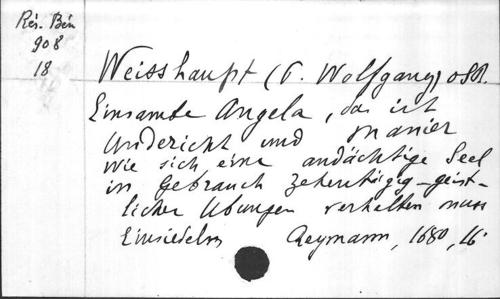 Rés. Bén
908
18
Weisshaupt (P. Wolfgang) OSB.
Einsambe Angela, das ist
Underricht und Manier
wie sich eine andächtige Seel
in Gebrauch zehentägig-geist-
licher Ubungen verhalten muss
Einsiedeln Reymann, 1680, 16°